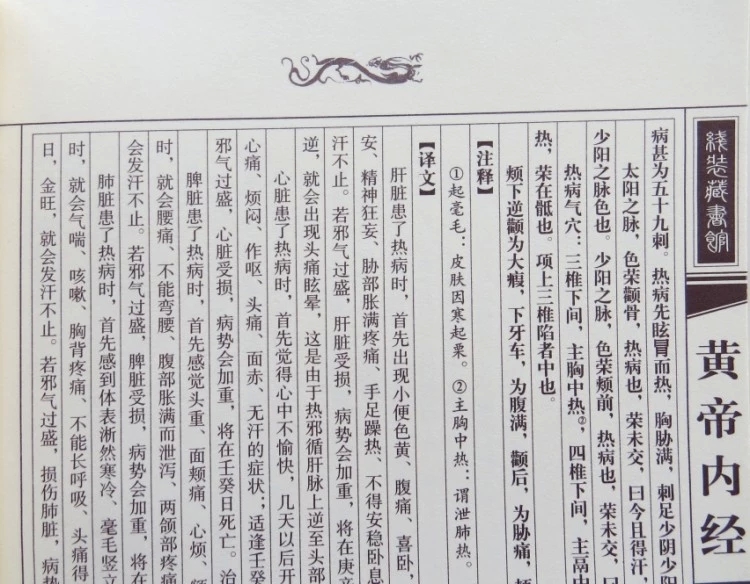 线装藏书馆
黄帝内经
病甚为五十九刺。热病先眩冒而热，胸胁满，刺足少阴少阳
太阳之脉，色荣颧骨，热病也，荣未交，曰今且得汗
少阳之脉色也。少阳之脉，色荣颊前，热病也，荣未交，曰
热病气穴：三椎下间，主胸中热②，四椎下间，主鬲中
热，荣在骶也。项上三椎陷者中也。
颊下逆颧为大瘕，下牙车，为腹满，颧后，为胁痛，颊
【注释】
①起毫毛：皮肤因寒起粟。②主胸中热：谓泄肺热。
【译文】
肝脏患了热病时，首先出现小便色黄、腹痛、喜卧，
安、精神狂妄、胁部胀满疼痛、手足躁热、不得安稳卧息
汗不止。若邪气过盛，肝脏受损，病势会加重，将在庚辛
逆，就会出现头痛眩晕，这是由于热邪循肝脉上逆至头部
心脏患了热病时，首先觉得心中不愉快，几天以后开
心痛、烦闷、作呕、头痛、面赤、无汗的症状；适逢壬癸
邪气过盛，心脏受损，病势会加重，将在壬癸日死亡。治
脾脏患了热病时，首先感觉头重、面颊痛、心烦、额
时，就会腰痛、不能弯腰、腹部胀满而泄泻、两颌部疼痛
会发汗不止。若邪气过盛，脾脏受损，病势会加重，将在
肺脏患了热病时，首先感到体表淅然寒冷、毫毛竖立
时，就会气喘、咳嗽、胸背疼痛、不能长呼吸、头痛得
日，金旺，就会发汗不止。若邪气过盛，损伤肺脏，病势